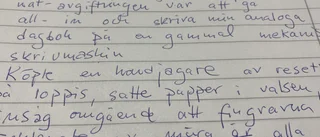 nät-avgiftningen var att gå
all-in och skriva min analoga
dagbok på en gammal mekani
skrivmaskin
Köpte en handjagare av reset
å loppis, satte papper i valsen
insåg omgående att fingrarna
alla